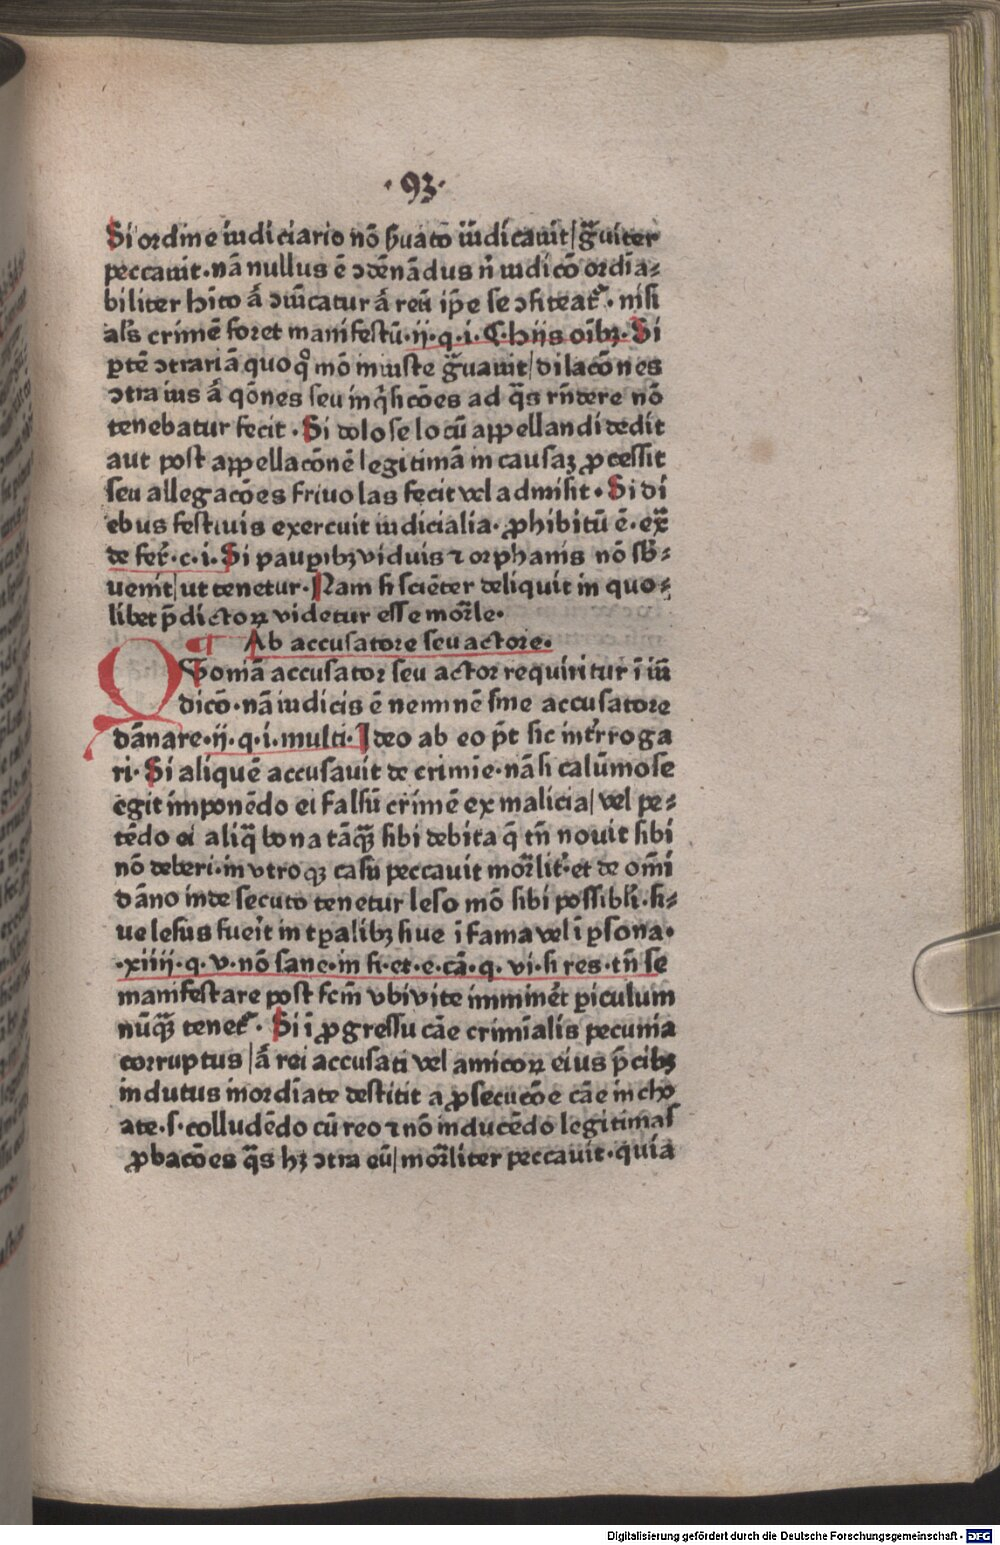 ·93·
Si ordine iudiciario nō ẜuato iūdicauit/g̃uiter
peccauit·nā nullus ē ↄdēnādus ī iudicō ordia⸗
biliter hīto ā ↄuīcatur ā reū ip̄e se ↄfiteat᷑· nisi
al̄s crimē foret manifestū·ij·q·i·C·hijs oībꝫ·Si
ꝑtē ↄtrariā quoqꝰ mō iniuste g̃uauit/dilacōnes
ↄtra ius ā q̄ones seu inq̇sicōes ad q̄s rn̄dere nō
tenebatur fecit·Si dolose locū appellandi dedit
aut post appellacōnē legitimā in causaꝫ ꝓcessit
seu allegacōes friuolas fecit vel admisit·Si di
ebus festiuis exercuit iudicialia·ꝓhibitū ē·ex̄
de fer̄·c·i·Si pauꝑibꝫ viduis ⁊ orphanis nō sb̄⸗
uenit/ut tenetur·Nam si sciēter deliquit in quo⸗
libet p̄dictoꝝ videtur esse mor̄le·
¶ Ab accusatore seu actore·
Quoniā accusator seu actor requiritur ī iū
dicō·nā iudicis ē neminē sine accusatore
dānare·ij·q·i·multi·Ideo ab eo p̄t sic int̄rroga
ri·Si aliquē accusauit de crimīe·nā si calūmose
egit imponēdo ei falsū crimē ex malicia/vel pe⸗
tēdo ei aliq̄ bona tāqꝫ sibi debita q̄ tn̄ nouit sibi
nō deberi·in vtroqꝫ casū peccauit mor̄lit᷑·et de om̄i
dāno inde secuto tenetur leso mō sibi possibli·si⸗
ue lesus fuerit in tꝑalibꝫ siue ī fama vel ī ꝑsona·
·xiiij·q·v·nō sane·in fi·et·e·cā·q·vi·si res·tn̄ se
manifestare post fcm̄ vbi vite imminēt ꝑiculum
nūqꝫ tenet᷑·Si ī ꝓgressu cāe crimīalis pecunia
corruptus/ā rei accusati vel amicoꝝ eius p̄cibꝫ
indutus inordiate destitit a ꝓsecucōe cāe incho
ate·s·colludēdo cū reo ⁊ nō inducēdo legitimas
ꝓbacōes q̄s hꝫ ↄtra eū/mor̄liter peccauit·quia
Digitalisierung gefördert durch die Deutsche Forschungsgemeinschaft - DFG